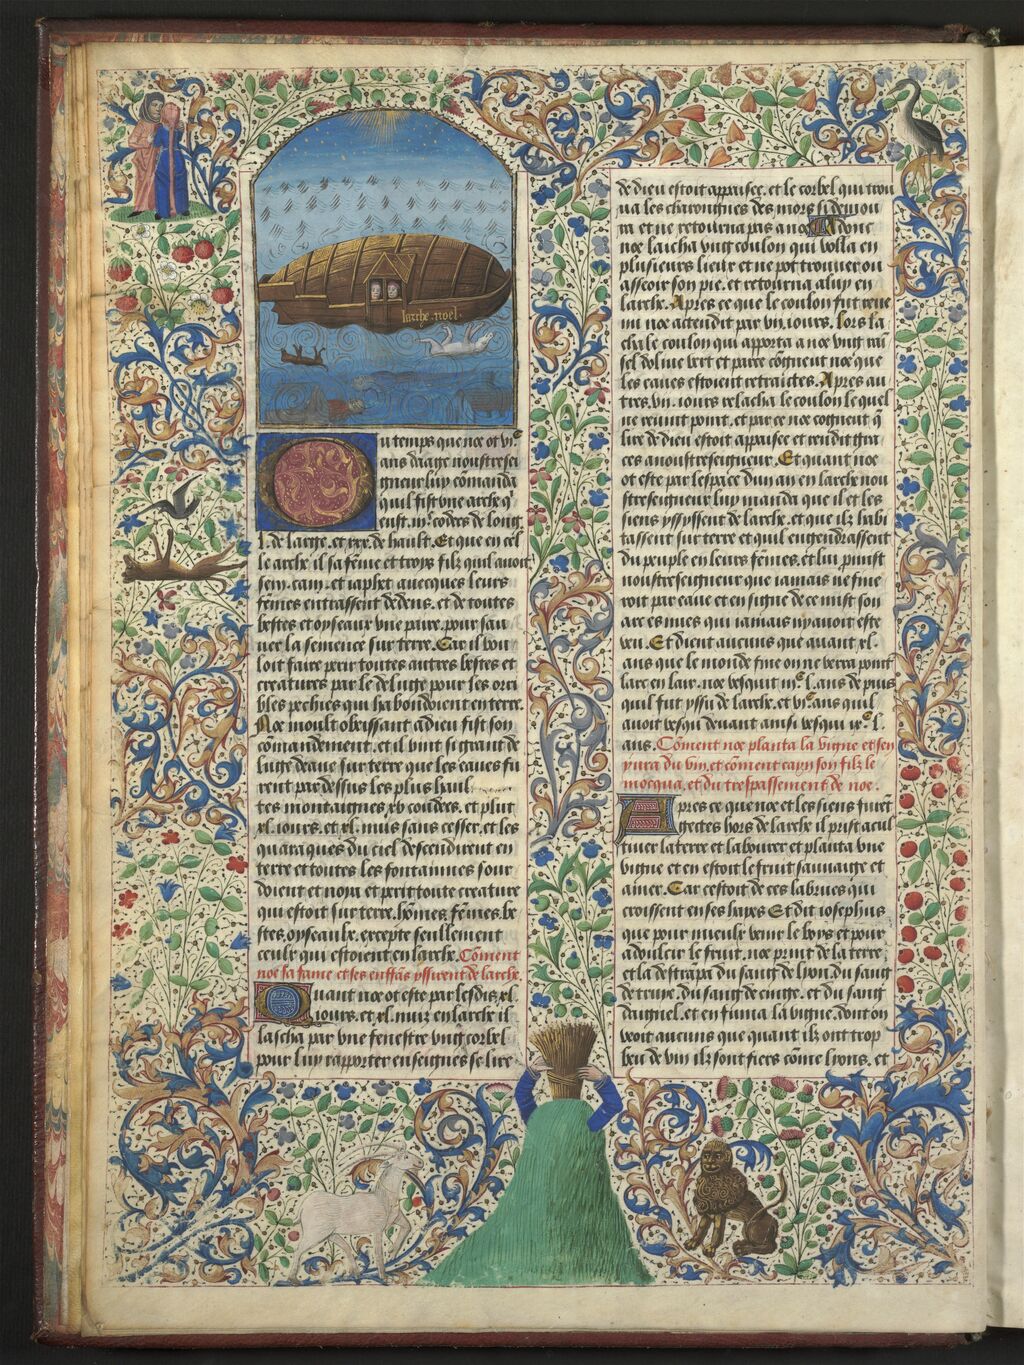 larche noel
Du temps que noe ot vi.c
ans daage nostre sei
gneur luy cōmanda
quil fist vne arche q'
eust .iii.c codees de long
l. de large. et xxx. de hault. Et que en cel
le arche il sa fēme et troys filz quil auoit
sem. cam. et iaphet auecques leurs
fēmes entrassent dedens. et de toutes
bestes et oyseaux vne paire. pour sau
uer la semence sur terre. Car il vou
loit faire perir toutes autres bestes et
creatures par le deluge pour les orri
bles pechies qui habondoient en terre.
Noe moult obeissant a dieu fist son
cōmandement. et il vint si grant de
luge deaue sur terre que les eaues fu
rent par dessus les plus haul
tes montaignes xv coudees. et plut
xl. iours. et xl. nuis sans cesser. et les
quataques du ciel descendirent en
terre et toutes les fontainnes sour
doient et noya et perit toute creature
qui estoit sur terre. hōmes. fēmes. be
stes. oyseaulx. excepte seullement
ceulx qui estoient en larche. Cōment
noe sa fame et ses enffās yssirent de larche.
Quant noe ot este par lesdis xl.
iours. et .xl. nuiz en larche il
lascha par vne fenestre vng corbel
pour luy rapporter enseignes se lire
de dieu estoit appaisee. et le corbel qui trou
ua les charongnes des mors si demou
ra et ne retourna pas a noe Adonc
noe laicha vng coulon qui volla en
plusieurs lieux et ne pot trouuer ou
asseoir son pie. et retourna a luy en
larche. Apres ce que le coulon fut reue
nu noe actendit par vii. iours. lors la
cha le coulon qui apporta a noe vng rai
sel doliue vert et parce cōgneut noe que
les eaues estoient retraictes. Apres au
tres .vii. iours relacha le coulon le quel
ne reuint point. et par ce noe cogneut q̄
lire de dieu estoit appaisee et rendit gra
ces a nostre seigneur. Et quant noe
ot este par lespace dun an en larche no
stre seigneur luy manda que il et les
siens yssyssent de larche. et que ilz habi
tassent sur terre et quil engendrassent
du peuple en leurs fēmes. et lui promist
nostre seigneur que iamais ne fine
roit par eaue et en signe de ce mist son
arc es nues qui iamais ny auoit este
veu. Et dient aucuns que auant xl.
ans que le monde fine on ne verra point
larc en lair. noe vesquit iii.c l. ans depuis
quil fut yssu de larche. et vi.c ans quil
auoit vesqu deuant ainsi vesqui ix.c l.
ans. Cōment noe planta la vigne et sen
yura du vin. et cōment cayn son filz le
mocqua. et du trespassement de noe.
Apres ce que noe et les siens furēt
gectes hors de larche il prist a cul
tiuer la terre et labourer et planta vne
vigne et en estoit le fruit sauuaige et
amer. Car cestoit de ces labrues qui
croissent en ses hayes Et dit iosephus
que pour mieulx venir le boys et pour
adoulcir le fruit. noe print de la terre
et la destrapa du sang de lyon. du sang
de truye. du sang de cinge. et du sang
daignel. et en fuma la vigne. dont on
voit aucuns que quant ilz ont trop
beu de vin ilz sont fiers cōme lyons. et